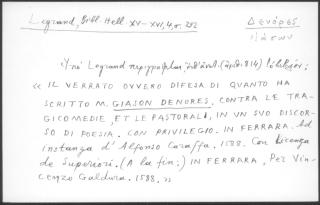 Legrand, Bibl. Hell. XV-XVI, 4, σ. 252
Δενόρες
Ἰάσων
Ὑπὸ Legrand περιγράφεται (ἀρ. 814) βιβλίον:
« IL VERRATO OVVERO DIFESA DI QUANTO HA
SCRITTO M. GIASON DENORES, CONTRA LE TRA-
GICOMEDIE, ET LE PASTORALI, IN UN SUO DISCOR-
SO DI POESIA. CON PRIVILEGIO. IN FERRARA. Ad
instanza d' Alfonso Caraffa. 1588. Con licenza
de Superiori. (A la fin:) IN FERRARA, Per Vin-
cenzo Galdura. 1588. »